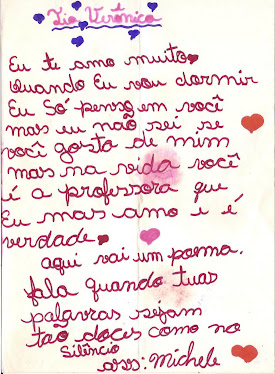 Tia Verônica
Eu te amo muito
Quando Eu vou dormir
Eu Só penso em você
mais eu não sei se
você gosta de mim
mais na vida você
é a professora que
Eu mas amo e é
verdade
aqui vai um poema.
fala quando tuas
palavras sejam
tão doces como no
Silêncio
ass: Michele